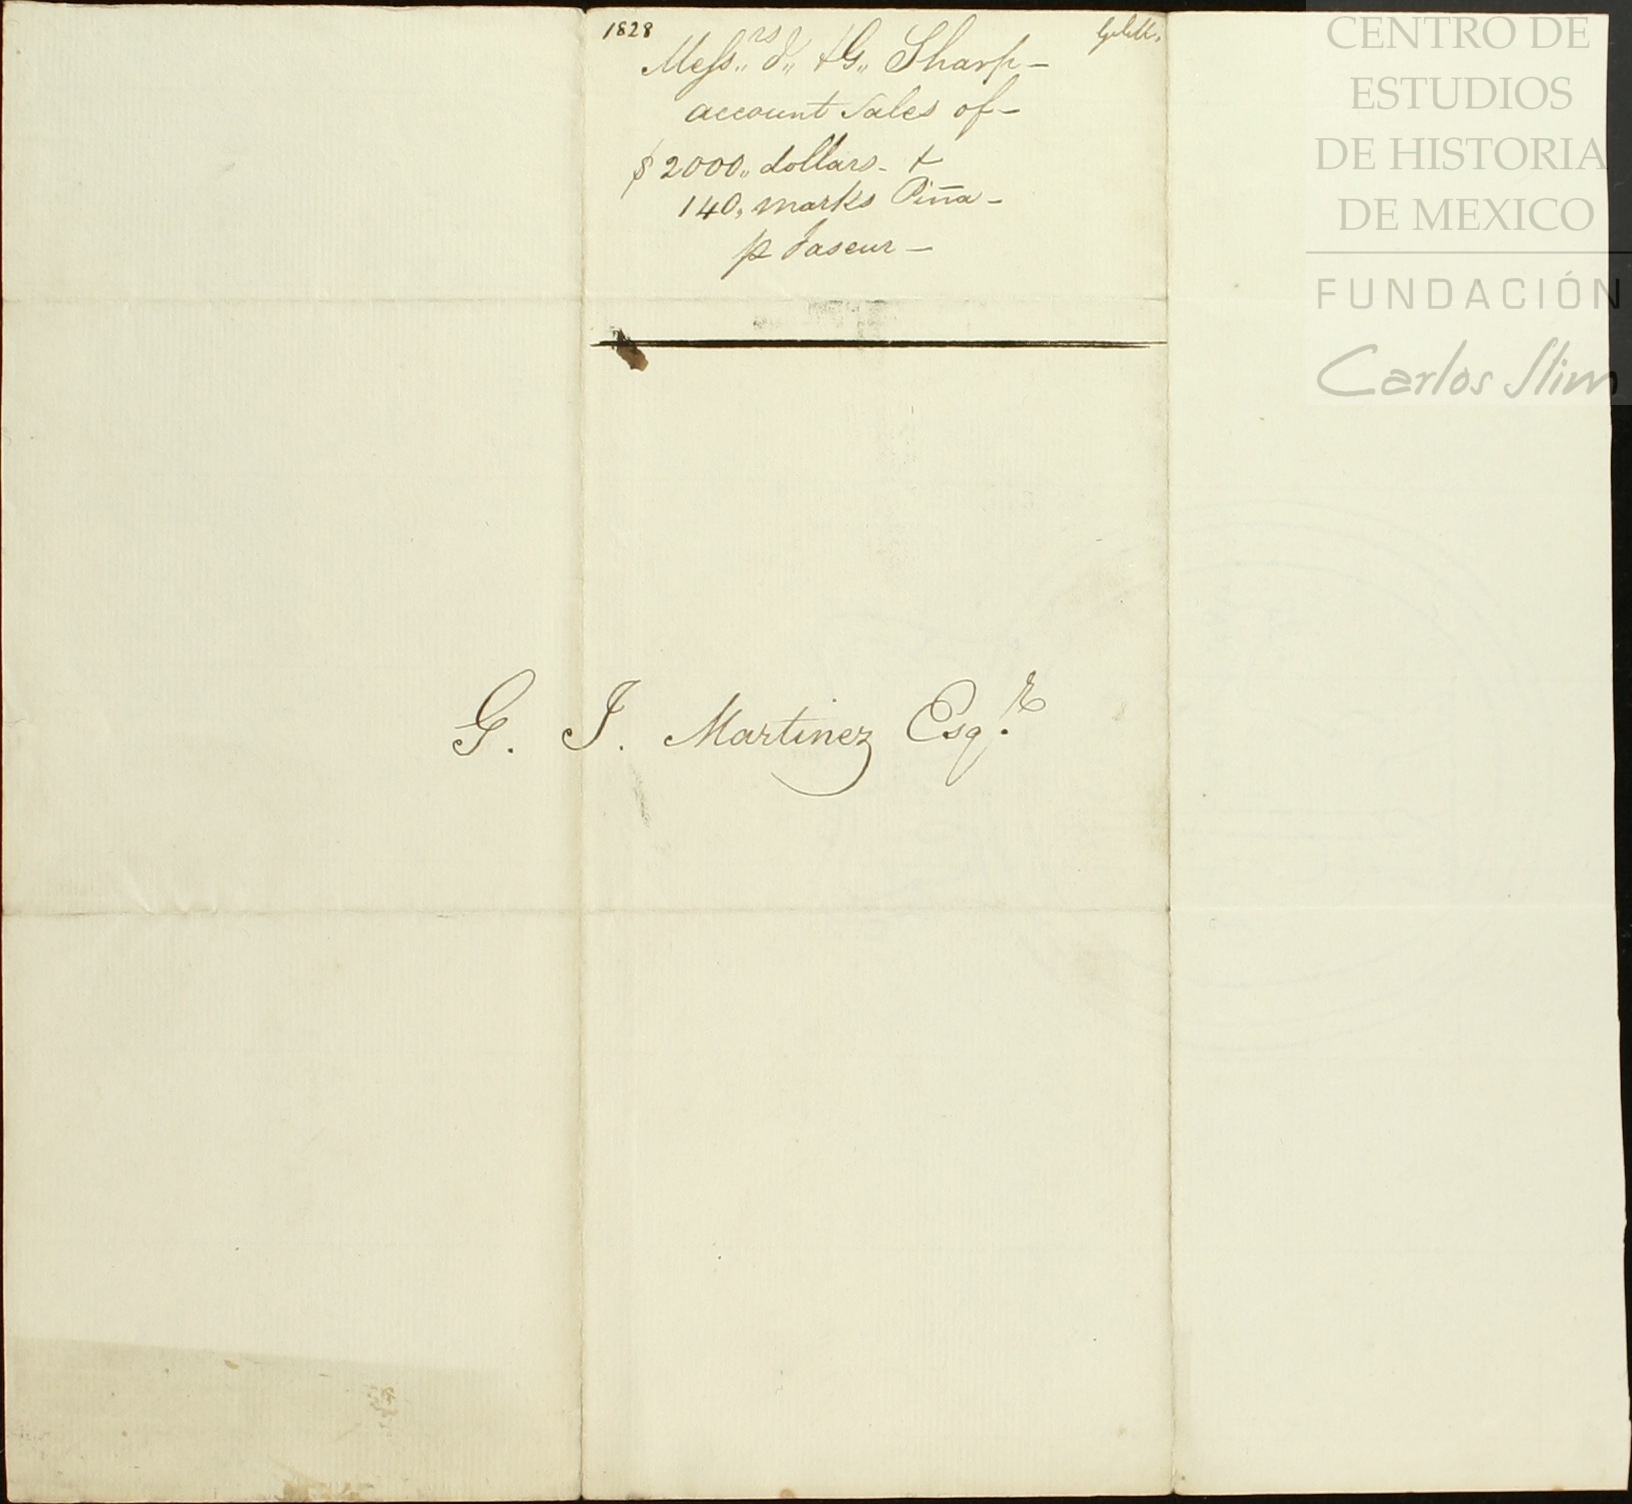 1828
Mess.rs J. & G. Sharp -
account Sales of -
$2000,, dollars - &
140, marks Piña -
p Jaseur -
G. J. Martinez Esq.re
CENTRO DE
ESTUDIOS
DE HISTORIA
DE MEXICO
FUNDACIÓN
Carlos Slim